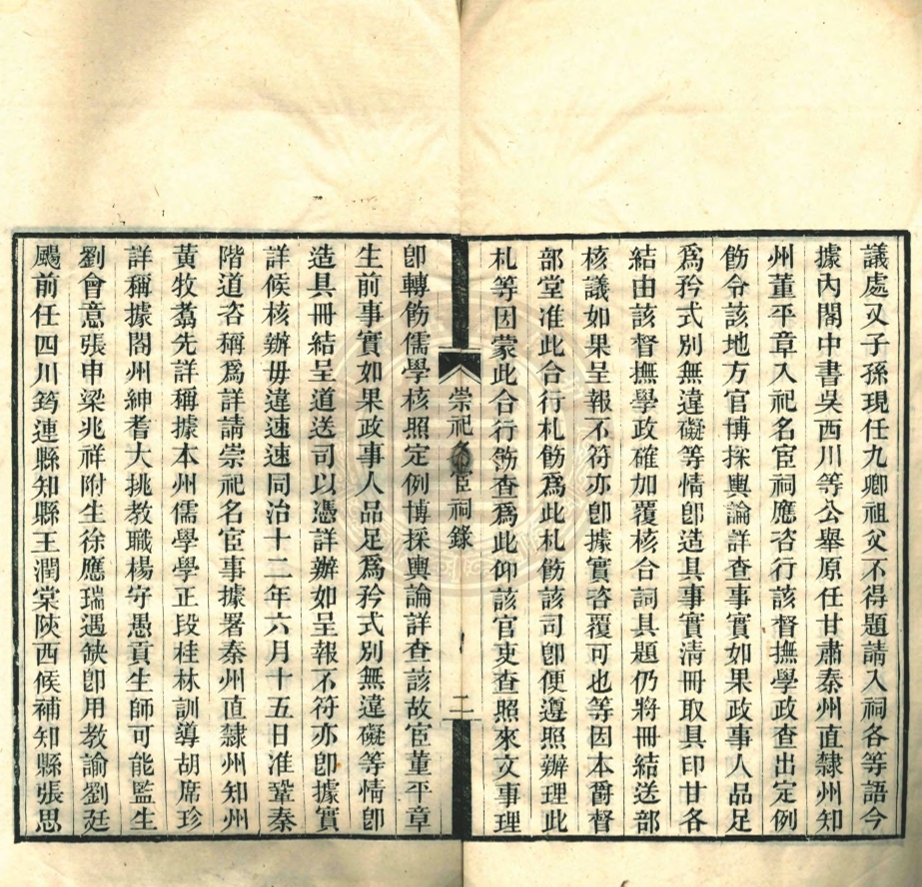 議處又子孫現任九卿祖父不得題請入祠各等語今
據內閣中書吳西川等公舉原任甘肅秦州直隸州知
州董平章入祀名宦祠應咨行該督撫學政查出定例
飭令該地方官博採輿論詳查事實如果政事人品足
爲矜式別無違礙等情卽造具事實清冊取具印甘各
結由該督撫學政確加覆核合詞具題仍將冊結送部
核議如果呈報不符亦卽據實咨覆可也等因本爵督
部堂准此合行札飭爲此札飭該司卽便遵照辦理此
札等因蒙此合行飭查爲此仰該官吏查照來文事理
崇祀名宦祠錄
二
卽轉飭儒學核照定例博採輿論詳查該故宦董平章
生前事實如果政事人品足爲矜式別無違礙等情卽
造具冊結呈道送司以憑詳辦如呈報不符亦卽據實
詳候核辦毋違速速同治十二年六月十五日准鞏秦
階道咨稱爲詳請崇祀名宦事據署秦州直隸州知州
黃牧翥先詳稱據本州儒學學正段桂林訓導胡席珍
詳稱據閤州紳耆大挑教職楊守愚貢生師可能監生
劉會意張申梁兆祥附生徐應瑞遇缺卽用教諭劉廷
颺前任四川筠連縣知縣王潤棠陝西候補知縣張思